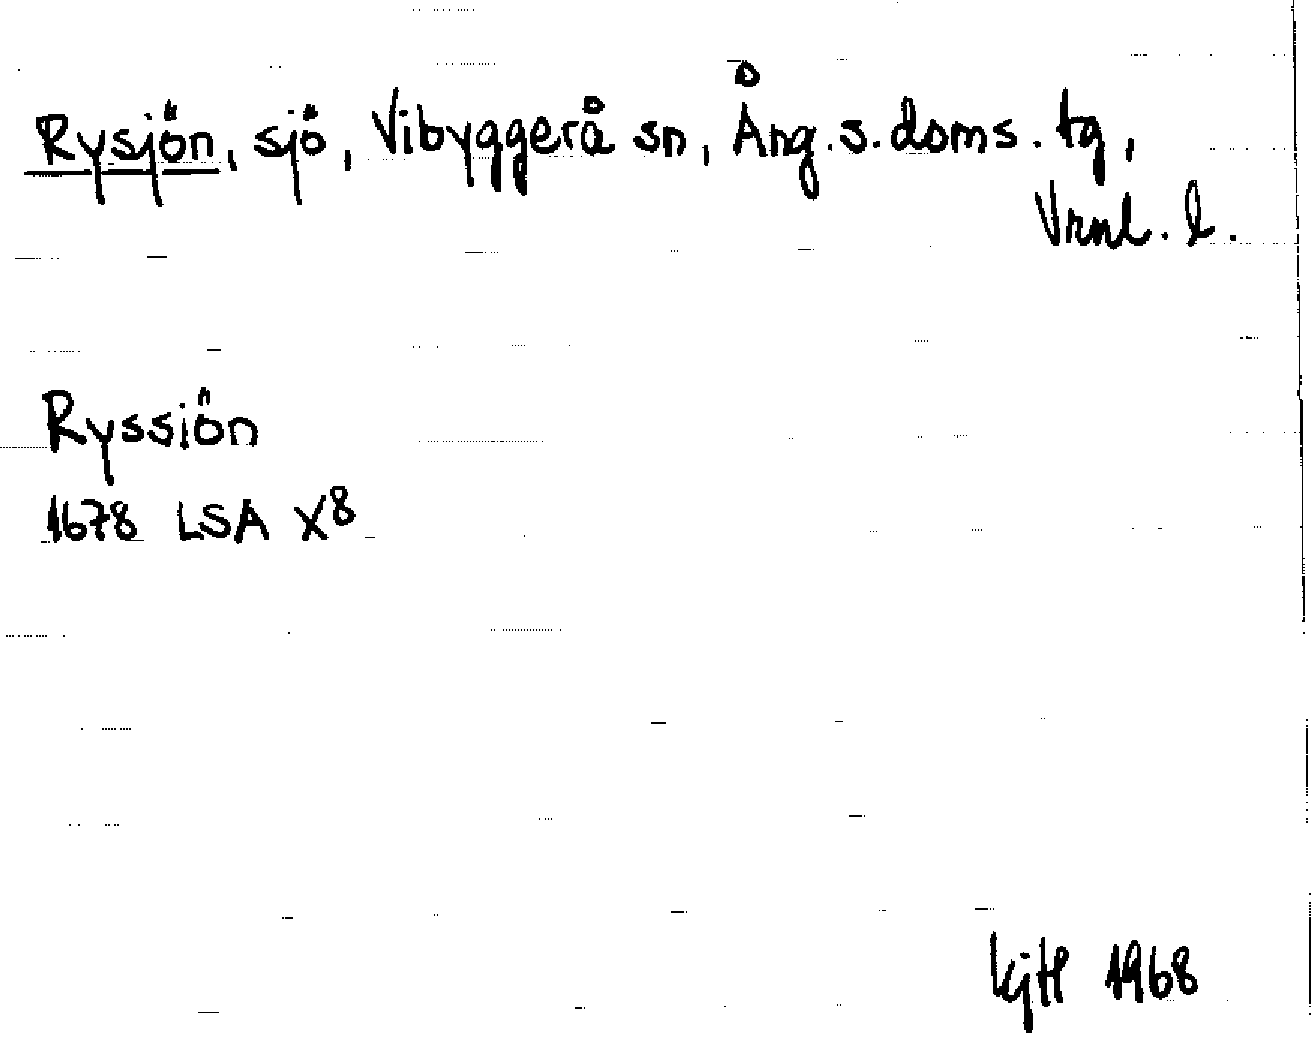 Rysjön, sjö, Vibyggerå sn, Ång. s. doms. tg,
Vrnl. l.
Ryssiön
1678 LSA X8
1968